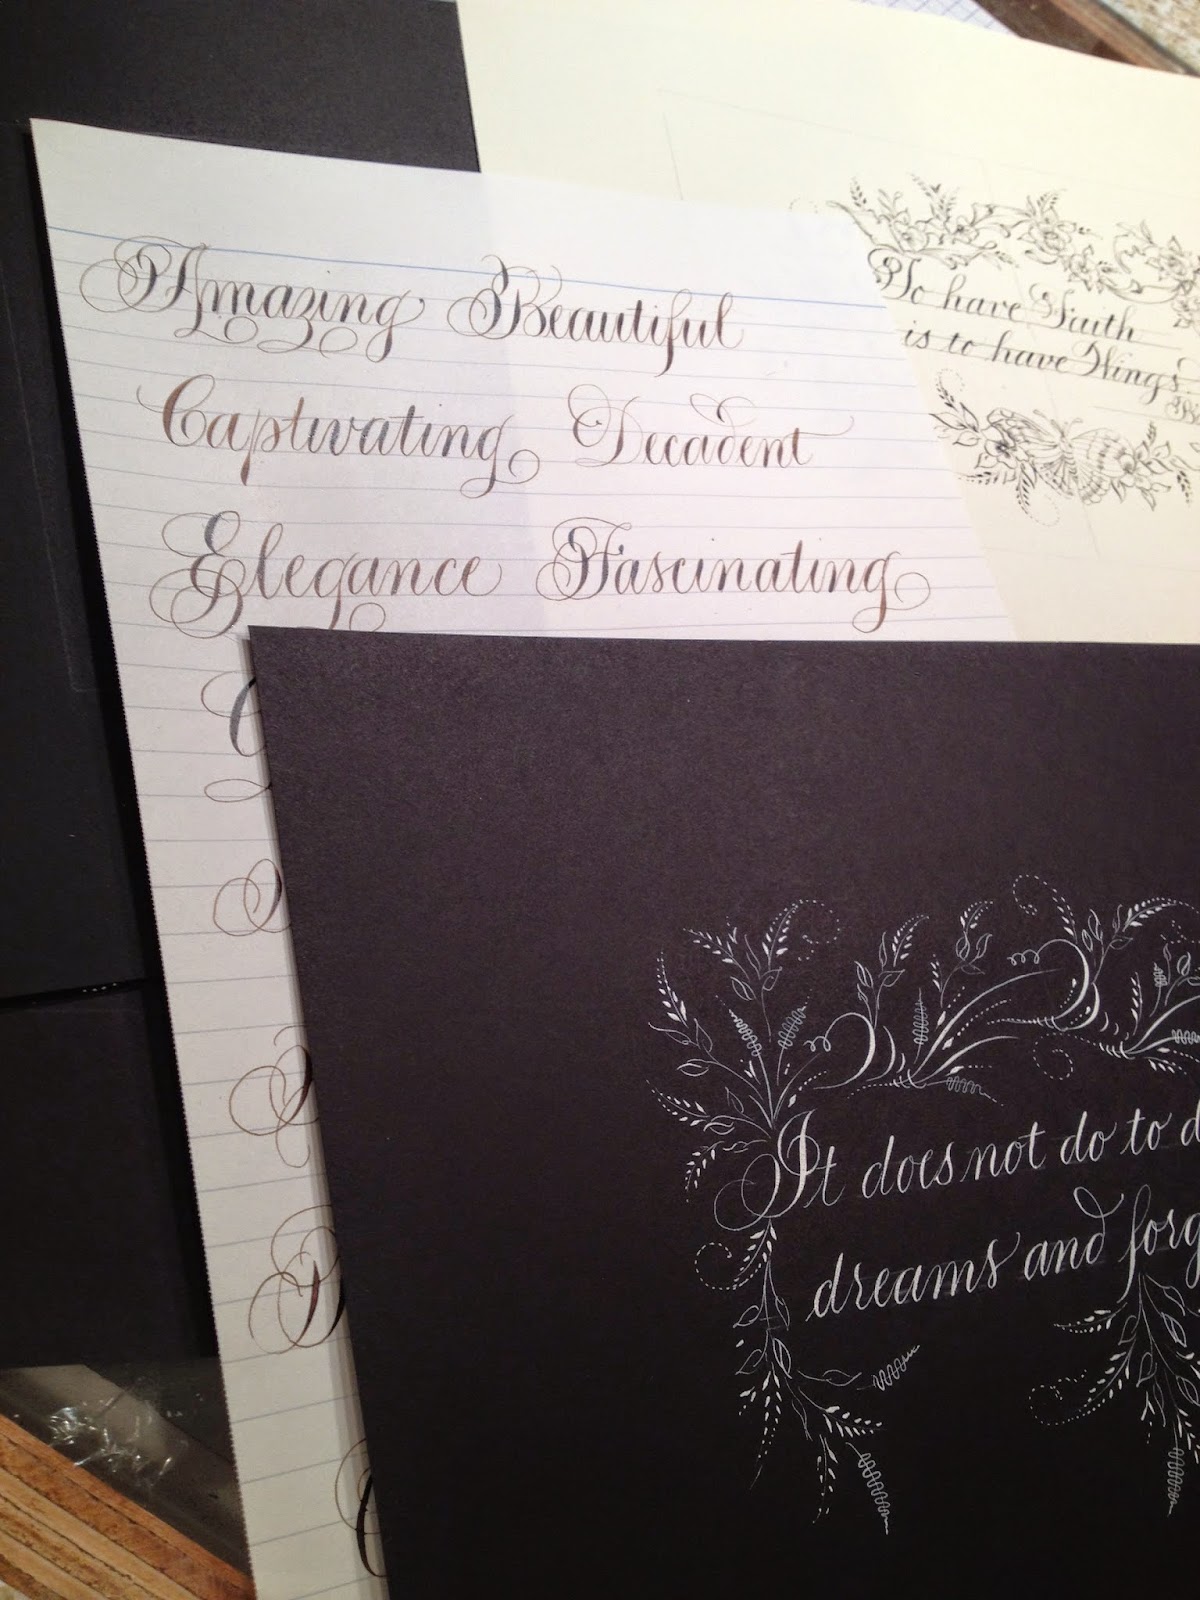 Amazing Beautiful
Captivating Decadent
Elegance Fascinating
To have Faith
is to have Wings
It does not do to d
dreams and forg